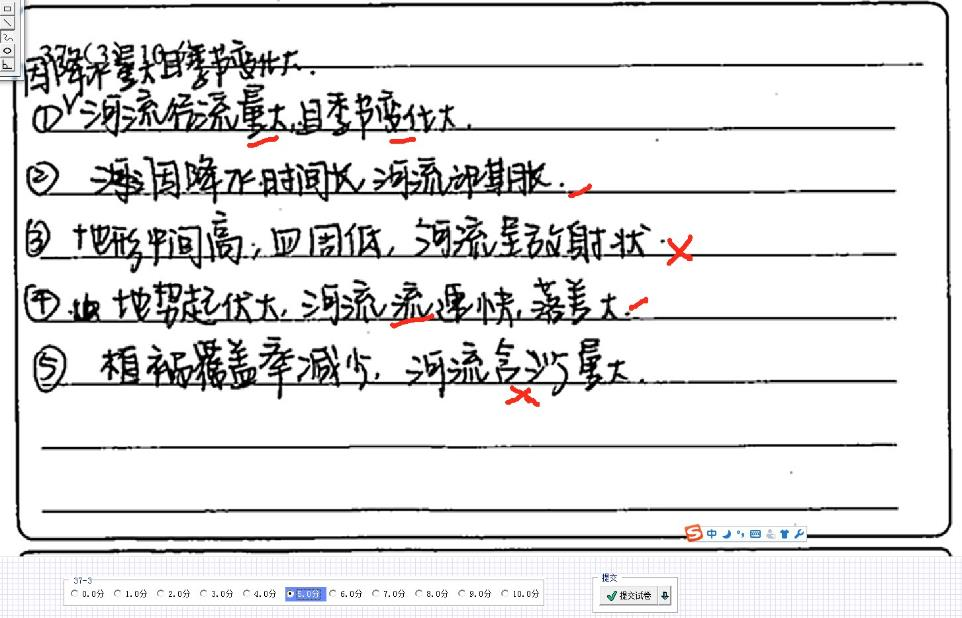 因降水量大且季节变化大.
①河流径流量大,且季节变化大.
② 因降水时间长 河流汛期长.
③ 地形中间高,四周低,河流呈放射状.
④.地势起伏大,河流流速快,落差大.
⑤ 植被覆盖率减少,河流含沙量大.
S中
37-3
0.0分 1.0分 2.0分 3.0分 4.0分 5.0分 6.0分 7.0分 8.0分 9.0分 10.0分
提交
提交试卷